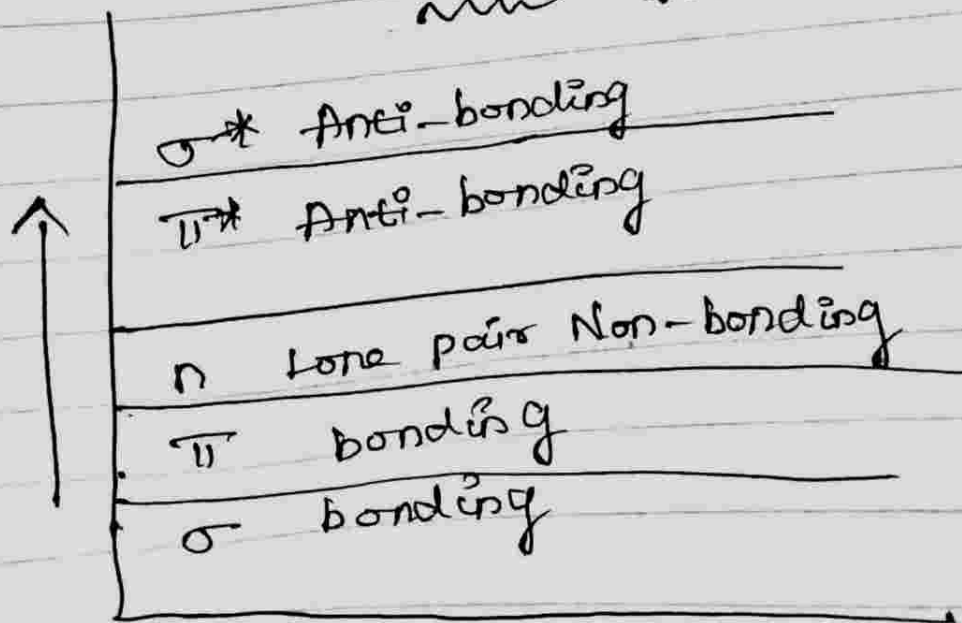 σ* Anti-bonding
π* Anti-bonding
n Lone pair Non-bonding
π bonding
σ bonding